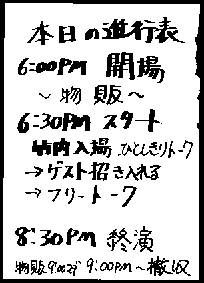 本日の進行表
6:00PM 開場
〜物販〜
6:30PM スタート
場内入場、ひとしきりトーク
→ゲスト招き入れる
→フリートーク
8:30PM 終演
物販 9:00まで 9:00PM〜撤収